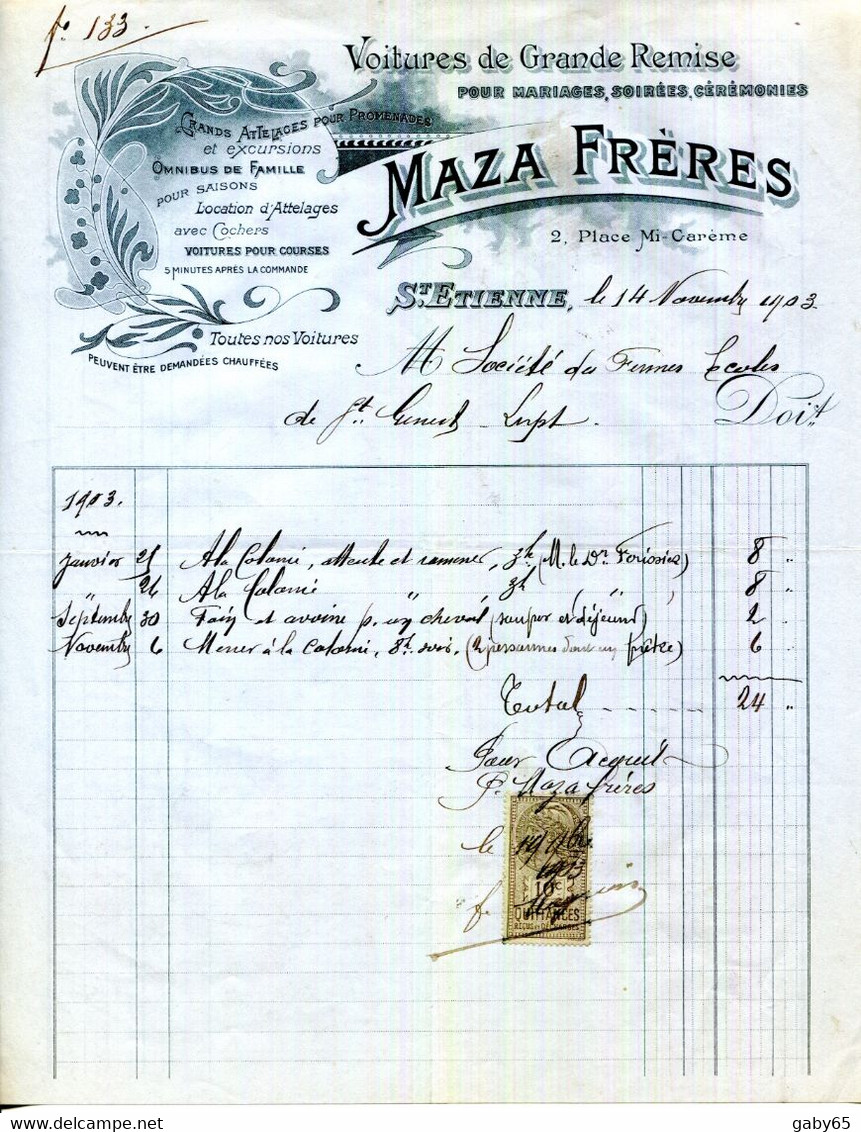 fo 133
Voitures de Grande Remise
POUR MARIAGES, SOIRÉES, CÉRÉMONIES
GRANDS ATTELAGES POUR PROMENADES
et excursions
OMNIBUS DE FAMILLE
POUR SAISONS
Location d'Attelages
avec Cochers
VOITURES POUR COURSES
5 MINUTES APRÈS LA COMMANDE
Toutes nos Voitures
PEUVENT ÊTRE DEMANDÉES CHAUFFÉES
MAZA FRÈRES
2, Place Mi-Carème
ST ETIENNE, le 14 Novembre 1903
M Société des Fermes Ecoles
de St. Genest Lerpt. Doit
1903.
Janvier 25 A la Colonie, attente et ramener, 3h (M. le Dr. ) 8 "
" 26 A la Colonie " " 3h ( " ) 8 "
Septembre 30 Foin et avoine p. un cheval (souper et déjeuné) 2 "
Novembre 6 Mener à la Colonie, 8h. soir, (2 personnes dont un prêtre) 6 "
Total 24 "
Pour Acquit
P. Maza frères
le 19 9bre
1903
10c
QUITTANCES
REÇUS ET DÉCHARGES
delcampe.net
gaby65